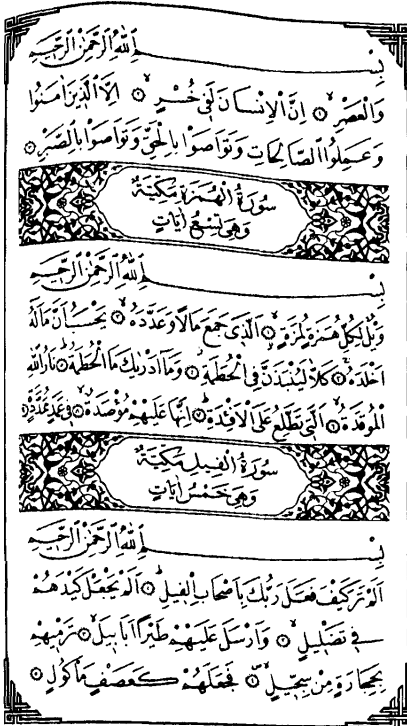 بِسْمِ اللّٰهِ الرَّحْمٰنِ الرَّحِيمِ
وَالْعَصْرِۙ ﴿١﴾ اِنَّ الْاِنْسَانَ لَفِى خُسْرٍۙ ﴿٢﴾ اِلَّا الَّذِينَ اٰمَنُوا
وَعَمِلُوا الصَّالِحَاتِ وَتَوَاصَوْا بِالْحَقِّ وَتَوَاصَوْا بِالصَّبْرِ ﴿٣﴾
سُورَةُ الْهُمَزَةِ مَكِّيَّةٌ
وَهِىَ تِسْعُ اٰيَاتٍ
بِسْمِ اللّٰهِ الرَّحْمٰنِ الرَّحِيمِ
وَيْلٌ لِكُلِّ هُمَزَةٍ لُمَزَةٍۙ ﴿١﴾ اَلَّذِى جَمَعَ مَالًا وَعَدَّدَهُۙ ﴿٢﴾ يَحْسَبُ اَنَّ مَالَهُ
اَخْلَدَهُۚ ﴿٣﴾ كَلَّا لَيُنْبَذَنَّ فِى الْحُطَمَةِۘ ﴿٤﴾ وَمَا اَدْرٰيكَ مَا الْحُطَمَةُۜ ﴿٥﴾ نَارُ اللّٰهِ
الْمُوقَدَةُۙ ﴿٦﴾ اَلَّتِى تَطَّلِعُ عَلَى الْاَفْئِدَةِۜ ﴿٧﴾ اِنَّهَا عَلَيْهِمْ مُؤْصَدَةٌۙ ﴿٨﴾ فِى عَمَدٍ مُمَدَّدَةٍ ﴿٩﴾
سُورَةُ الْفِيلِ مَكِّيَّةٌ
وَهِىَ خَمْسُ اٰيَاتٍ
بِسْمِ اللّٰهِ الرَّحْمٰنِ الرَّحِيمِ
اَلَمْ تَرَ كَيْفَ فَعَلَ رَبُّكَ بِاَصْحَابِ الْفِيلِۜ ﴿١﴾ اَلَمْ يَجْعَلْ كَيْدَهُمْ
فِى تَضْلِيلٍۙ ﴿٢﴾ وَاَرْسَلَ عَلَيْهِمْ طَيْرًا اَبَابِيلَۙ ﴿٣﴾ تَرْمِيهِمْ
بِحِجَارَةٍ مِنْ سِجِّيلٍۙ ﴿٤﴾ فَجَعَلَهُمْ كَعَصْفٍ مَأْكُولٍ ﴿٥﴾